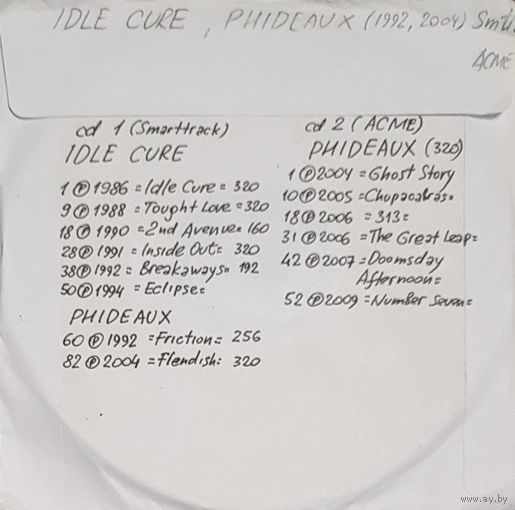 IDLE CURE, PHIDEAUX (1992, 2004) Smti.
ACME
cd 1 (Smarttrack)
IDLE CURE
1 ℗ 1986 =Idle Cure= 320
9 ℗ 1988 =Tought Love= 320
18 ℗ 1990 =2nd Avenue= 160
28 ℗ 1991 =Inside Out= 320
38 ℗ 1992 = Breakaways= 192
50 ℗ 1994 = Eclipse=
PHIDEAUX
60 ℗ 1992 =Friction= 256
82 ℗ 2004 =Fiendish= 320
cd 2 (ACME)
PHIDEAUX (320)
1 ℗ 2004 =Ghost Story
10 ℗ 2005 =Chupacabras=
18 ℗ 2006 =313=
31 ℗ 2006 =The Great Leap=
42 ℗ 2007 =Doomsday
Afternoon=
52 ℗ 2009 =Number Seven=
www.ay.by